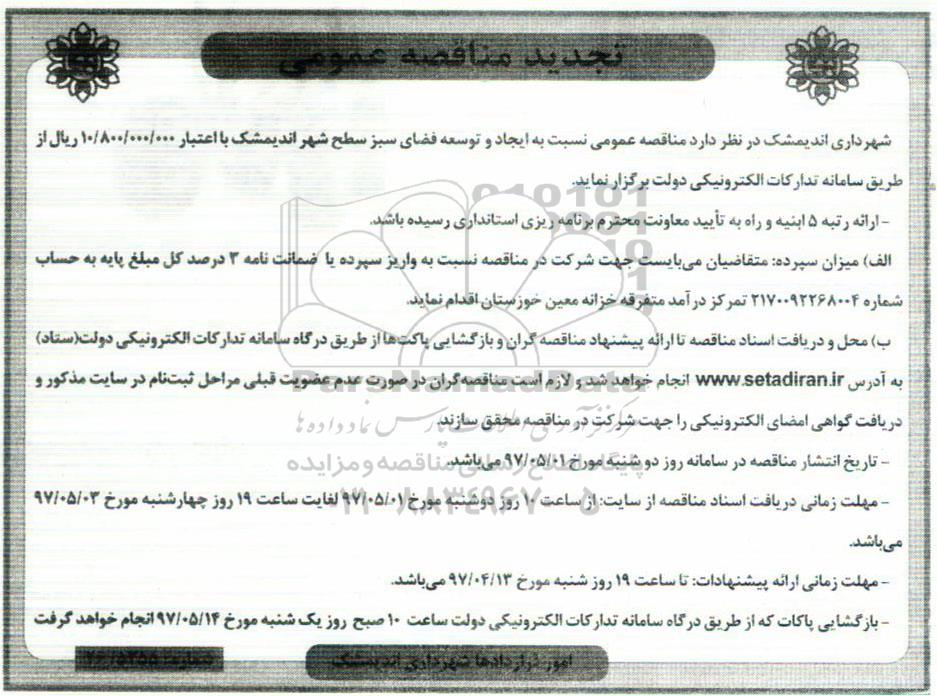 تجدید مناقصه عمومی
شهرداری اندیمشک در نظر دارد مناقصه عمومی نسبت به ایجاد و توسعه فضای سبز سطح شهر اندیمشک با اعتبار ۱۰/۸۰۰/۰۰۰/۰۰۰ ریال از
طریق سامانه تدارکات الکترونیکی دولت برگزار نماید.
- ارائه رتبه ۵ ابنیه و راه به تأیید معاونت محترم برنامه ریزی استانداری رسیده باشد.
الف) میزان سپرده: متقاضیان می‌بایست جهت شرکت در مناقصه نسبت به واریز سپرده یا ضمانت نامه ۳ درصد کل مبلغ پایه به حساب
شماره ۲۱۷۰۰۹۲۲۶۸۰۰۴ تمرکز درآمد متفرقه خزانه معین خوزستان اقدام نماید.
ب) محل و دریافت اسناد مناقصه تا ارائه پیشنهاد مناقصه گران و بازگشایی پاکت‌ها از طریق درگاه سامانه تدارکات الکترونیکی دولت(ستاد)
به آدرس www.setadiran.ir انجام خواهد شد و لازم است مناقصه‌گران در صورت عدم عضویت قبلی مراحل ثبت‌نام در سایت مذکور و
دریافت گواهی امضای الکترونیکی را جهت شرکت در مناقصه محقق سازند.
- تاریخ انتشار مناقصه در سامانه روز دو شنبه مورخ ۹۷/۰۵/۰۱ می‌باشد.
- مهلت زمانی دریافت اسناد مناقصه از سایت: از ساعت ۱۰ روز دوشنبه مورخ ۹۷/۰۵/۰۱ لغایت ساعت ۱۹ روز چهارشنبه مورخ ۹۷/۰۵/۰۳
می‌باشد.
- مهلت زمانی ارائه پیشنهادات: تا ساعت ۱۹ روز شنبه مورخ ۹۷/۰۴/۱۳ می‌باشد.
- بازگشایی پاکات که از طریق درگاه سامانه تدارکات الکترونیکی دولت ساعت ۱۰ صبح روز یک شنبه مورخ ۹۷/۰۵/۱۴ انجام خواهد گرفت
امور قراردادها شهرداری اندیمشک
ParsNamadData
پایگاه اطلاع رسانی مناقصه و مزایده
۰۲۱-۸۸۳۴۹۶۷۰-۵